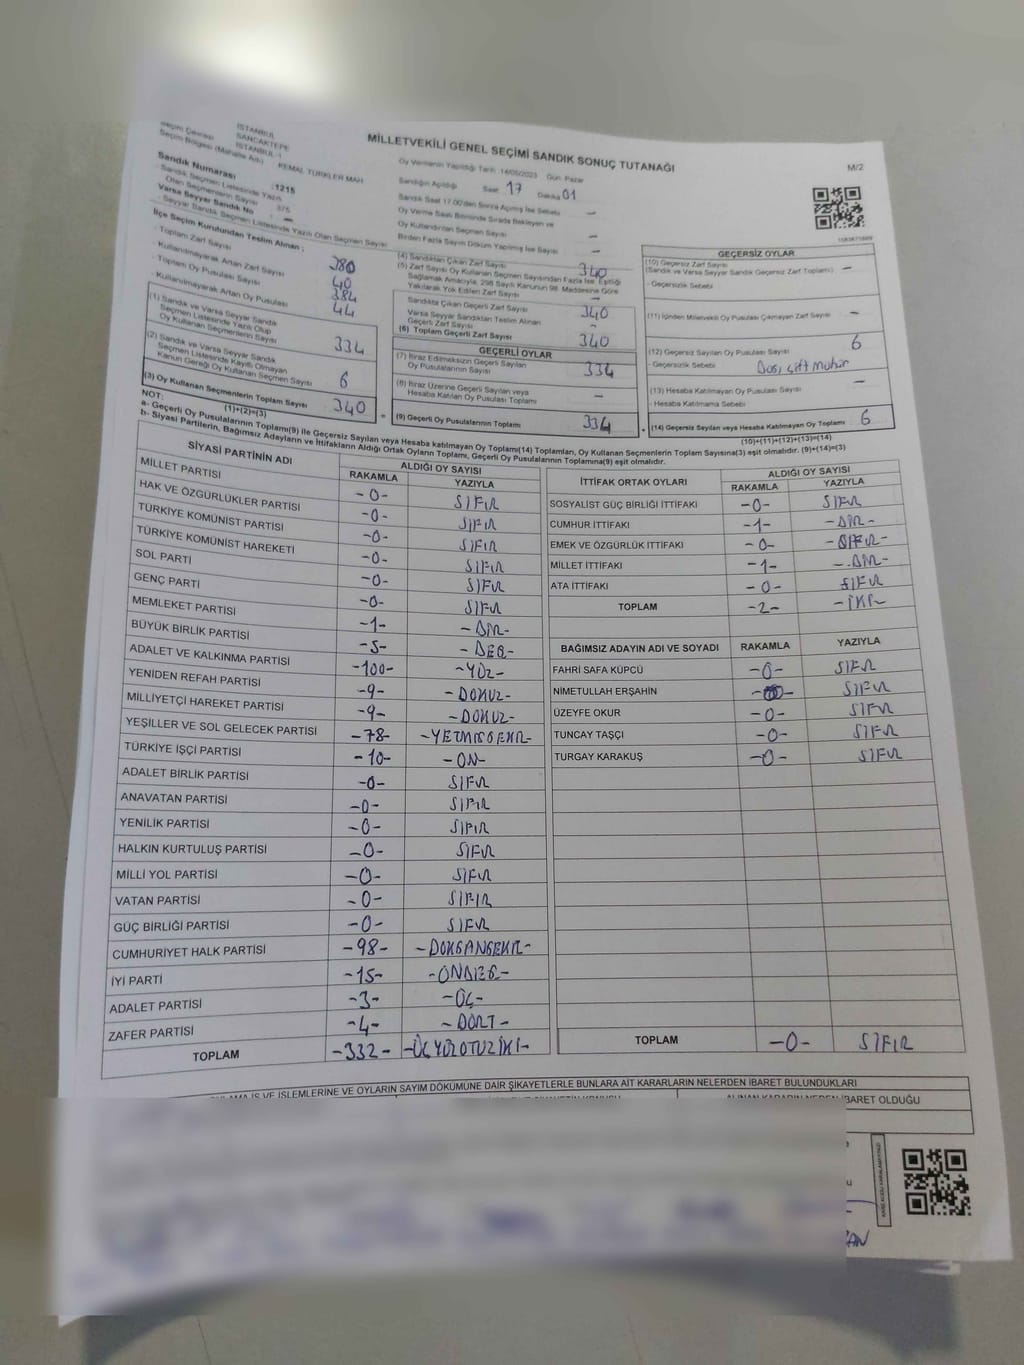 MİLLETVEKİLİ GENEL SEÇİMİ SANDIK SONUÇ TUTANAĞI
M/2
Seçim Çevresi İSTANBUL
SANCAKTEPE
İSTANBUL-1
Seçim Bölgesi (Mahalle Adı) : KEMAL TÜRKLER MAH.
Oy Vermenin Yapıldığı Tarih: 14/05/2023 Gün: Pazar
Sandığın Açıldığı Saat 17 Dakika 01
Sandık Saat 17.00'den Sonra Açılmış İse Sebebi -
Oy Verme Saati Bitiminde Sırada Bekleyen ve
Oy Kullandırılan Seçmen Sayısı -
Birden Fazla Sayım Döküm Yapılmış İse Sayısı -
Sandık Numarası : 1215
Sandık Seçmen Listesinde Yazılı
Olan Seçmenlerin Sayısı : 375
Varsa Seyyar Sandık No : -
Seyyar Sandık Seçmen Listesinde Yazılı Olan Seçmen Sayısı
İlçe Seçim Kurulundan Teslim Alınan ;
Toplam Zarf Sayısı 380
Kullanılmayarak Artan Zarf Sayısı 40
Toplam Oy Pusulası Sayısı 384
Kullanılmayarak Artan Oy Pusulası 44
(1) Sandık ve Varsa Seyyar Sandık
Seçmen Listesinde Yazılı Olup
Oy Kullanan Seçmenlerin Sayısı 334
(2) Sandık ve Varsa Seyyar Sandık
Seçmen Listesinde Kayıtlı Olmayan
Kanun Gereği Oy Kullanan Seçmen Sayısı 6
(3) Oy Kullanan Seçmenlerin Toplam Sayısı 340
(1)+(2)=(3)
(4) Sandıktan Çıkan Zarf Sayısı 340
(5) Zarf Sayısı Oy Kullanan Seçmen Sayısından Fazla İse, Eşitliği
Sağlamak Amacıyla, 298 Sayılı Kanunun 98. Maddesine Göre
Yakılarak Yok Edilen Zarf Sayısı -
Sandıkta Çıkan Geçerli Zarf Sayısı 340
Varsa Seyyar Sandıktan Teslim Alınan
Geçerli Zarf Sayısı -
(6) Toplam Geçerli Zarf Sayısı 340
GEÇERLİ OYLAR
(7) İtiraz Edilmeksizin Geçerli Sayılan
Oy Pusulalarının Sayısı 334
(8) İtiraz Üzerine Geçerli Sayılan veya
Hesaba Katılan Oy Pusulası Toplamı -
(9) Geçerli Oy Pusulalarının Toplamı 334
GEÇERSİZ OYLAR
(10) Geçersiz Zarf Sayısı
(Sandık ve Varsa Seyyar Sandık Geçersiz Zarf Toplamı) -
- Geçersizlik Sebebi
(11) İçinden Milletvekili Oy Pusulası Çıkmayan Zarf Sayısı -
(12) Geçersiz Sayılan Oy Pusulası Sayısı 6
- Geçersizlik Sebebi çift mühür
(13) Hesaba Katılmayan Oy Pusulası Sayısı -
- Hesaba Katılmama Sebebi
(14) Geçersiz Sayılan veya Hesaba Katılmayan Oy Toplamı 6
(10)+(11)+(12)+(13)=(14)
NOT:
a- Geçerli Oy Pusulalarının Toplamı(9) ile Geçersiz Sayılan veya Hesaba katılmayan Oy Toplamı(14) Toplamları, Oy Kullanan Seçmenlerin Toplam Sayısına(3) eşit olmalıdır. (9)+(14)=(3)
b- Siyasi Partilerin, Bağımsız Adayların ve İttifakların Aldığı Ortak Oyların Toplamı, Geçerli Oy Pusulalarının Toplamına(9) eşit olmalıdır.
SİYASİ PARTİNİN ADI ALDIĞI OY SAYISI
RAKAMLA YAZIYLA
MİLLET PARTİSİ -0- SIFIR
HAK VE ÖZGÜRLÜKLER PARTİSİ -0- SIFIR
TÜRKİYE KOMÜNİST PARTİSİ -0- SIFIR
TÜRKİYE KOMÜNİST HAREKETİ -0- SIFIR
SOL PARTİ -0- SIFIR
GENÇ PARTİ -0- SIFIR
MEMLEKET PARTİSİ -1- -BİR-
BÜYÜK BİRLİK PARTİSİ -5- -BEŞ-
ADALET VE KALKINMA PARTİSİ -100- -YÜZ-
YENİDEN REFAH PARTİSİ -9- -DOKUZ-
MİLLİYETÇİ HAREKET PARTİSİ -9- -DOKUZ-
YEŞİLLER VE SOL GELECEK PARTİSİ -78- -YETMİŞSEKİZ-
TÜRKİYE İŞÇİ PARTİSİ -10- -ON-
ADALET BİRLİK PARTİSİ -0- SIFIR
ANAVATAN PARTİSİ -0- SIFIR
YENİLİK PARTİSİ -0- SIFIR
HALKIN KURTULUŞ PARTİSİ -0- SIFIR
MİLLİ YOL PARTİSİ -0- SIFIR
VATAN PARTİSİ -0- SIFIR
GÜÇ BİRLİĞİ PARTİSİ -0- SIFIR
CUMHURİYET HALK PARTİSİ -98- -DOKSANSEKİZ-
İYİ PARTİ -15- -ONBEŞ-
ADALET PARTİSİ -3- -ÜÇ-
ZAFER PARTİSİ -4- -DÖRT-
TOPLAM -332- -ÜÇYÜZOTUZİKİ-
İTTİFAK ORTAK OYLARI ALDIĞI OY SAYISI
RAKAMLA YAZIYLA
SOSYALİST GÜÇ BİRLİĞİ İTTİFAKI -0- SIFIR
CUMHUR İTTİFAKI -1- -BİR-
EMEK VE ÖZGÜRLÜK İTTİFAKI -0- -SIFIR-
MİLLET İTTİFAKI -1- -BİR-
ATA İTTİFAKI -0- SIFIR
TOPLAM -2- -İKİ-
BAĞIMSIZ ADAYIN ADI VE SOYADI RAKAMLA YAZIYLA
FAHRİ SAFA KÜPCÜ -0- SIFIR
NİMETULLAH ERŞAHİN SIFIR
ÜZEYFE OKUR -0- SIFIR
TUNCAY TAŞÇI -0- SIFIR
TURGAY KARAKUŞ -0- SIFIR
TOPLAM -0- SIFIR
İŞ VE İŞLEMLERİNE VE OYLARIN SAYIM DÖKÜMÜNE DAİR ŞİKAYETLERLE BUNLARA AİT KARARLARIN NELERDEN İBARET BULUNDUKLARI
ALINAN KARARIN NEDEN İBARET OLDUĞU